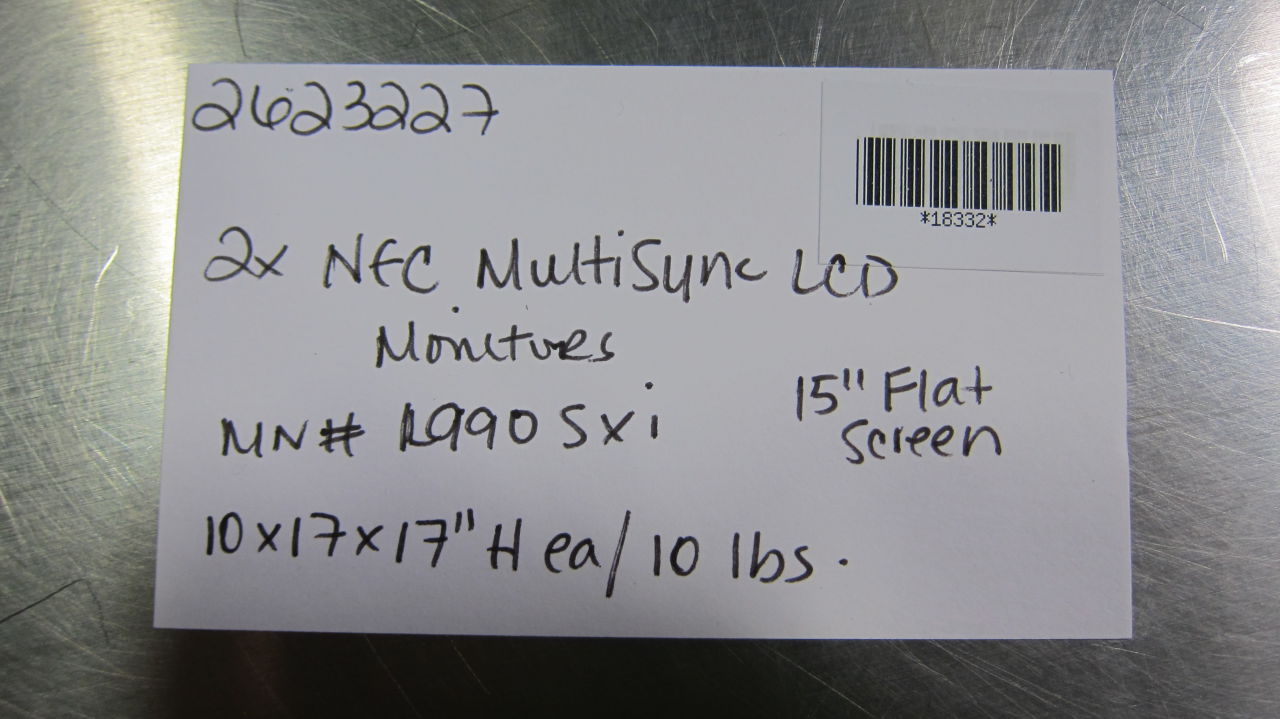 2623227
*18332*
2x NEC MultiSync LCD
Moniturs
MN# L990 SXi
15" Flat
Screen
10x17x17"H ea/10 lbs.